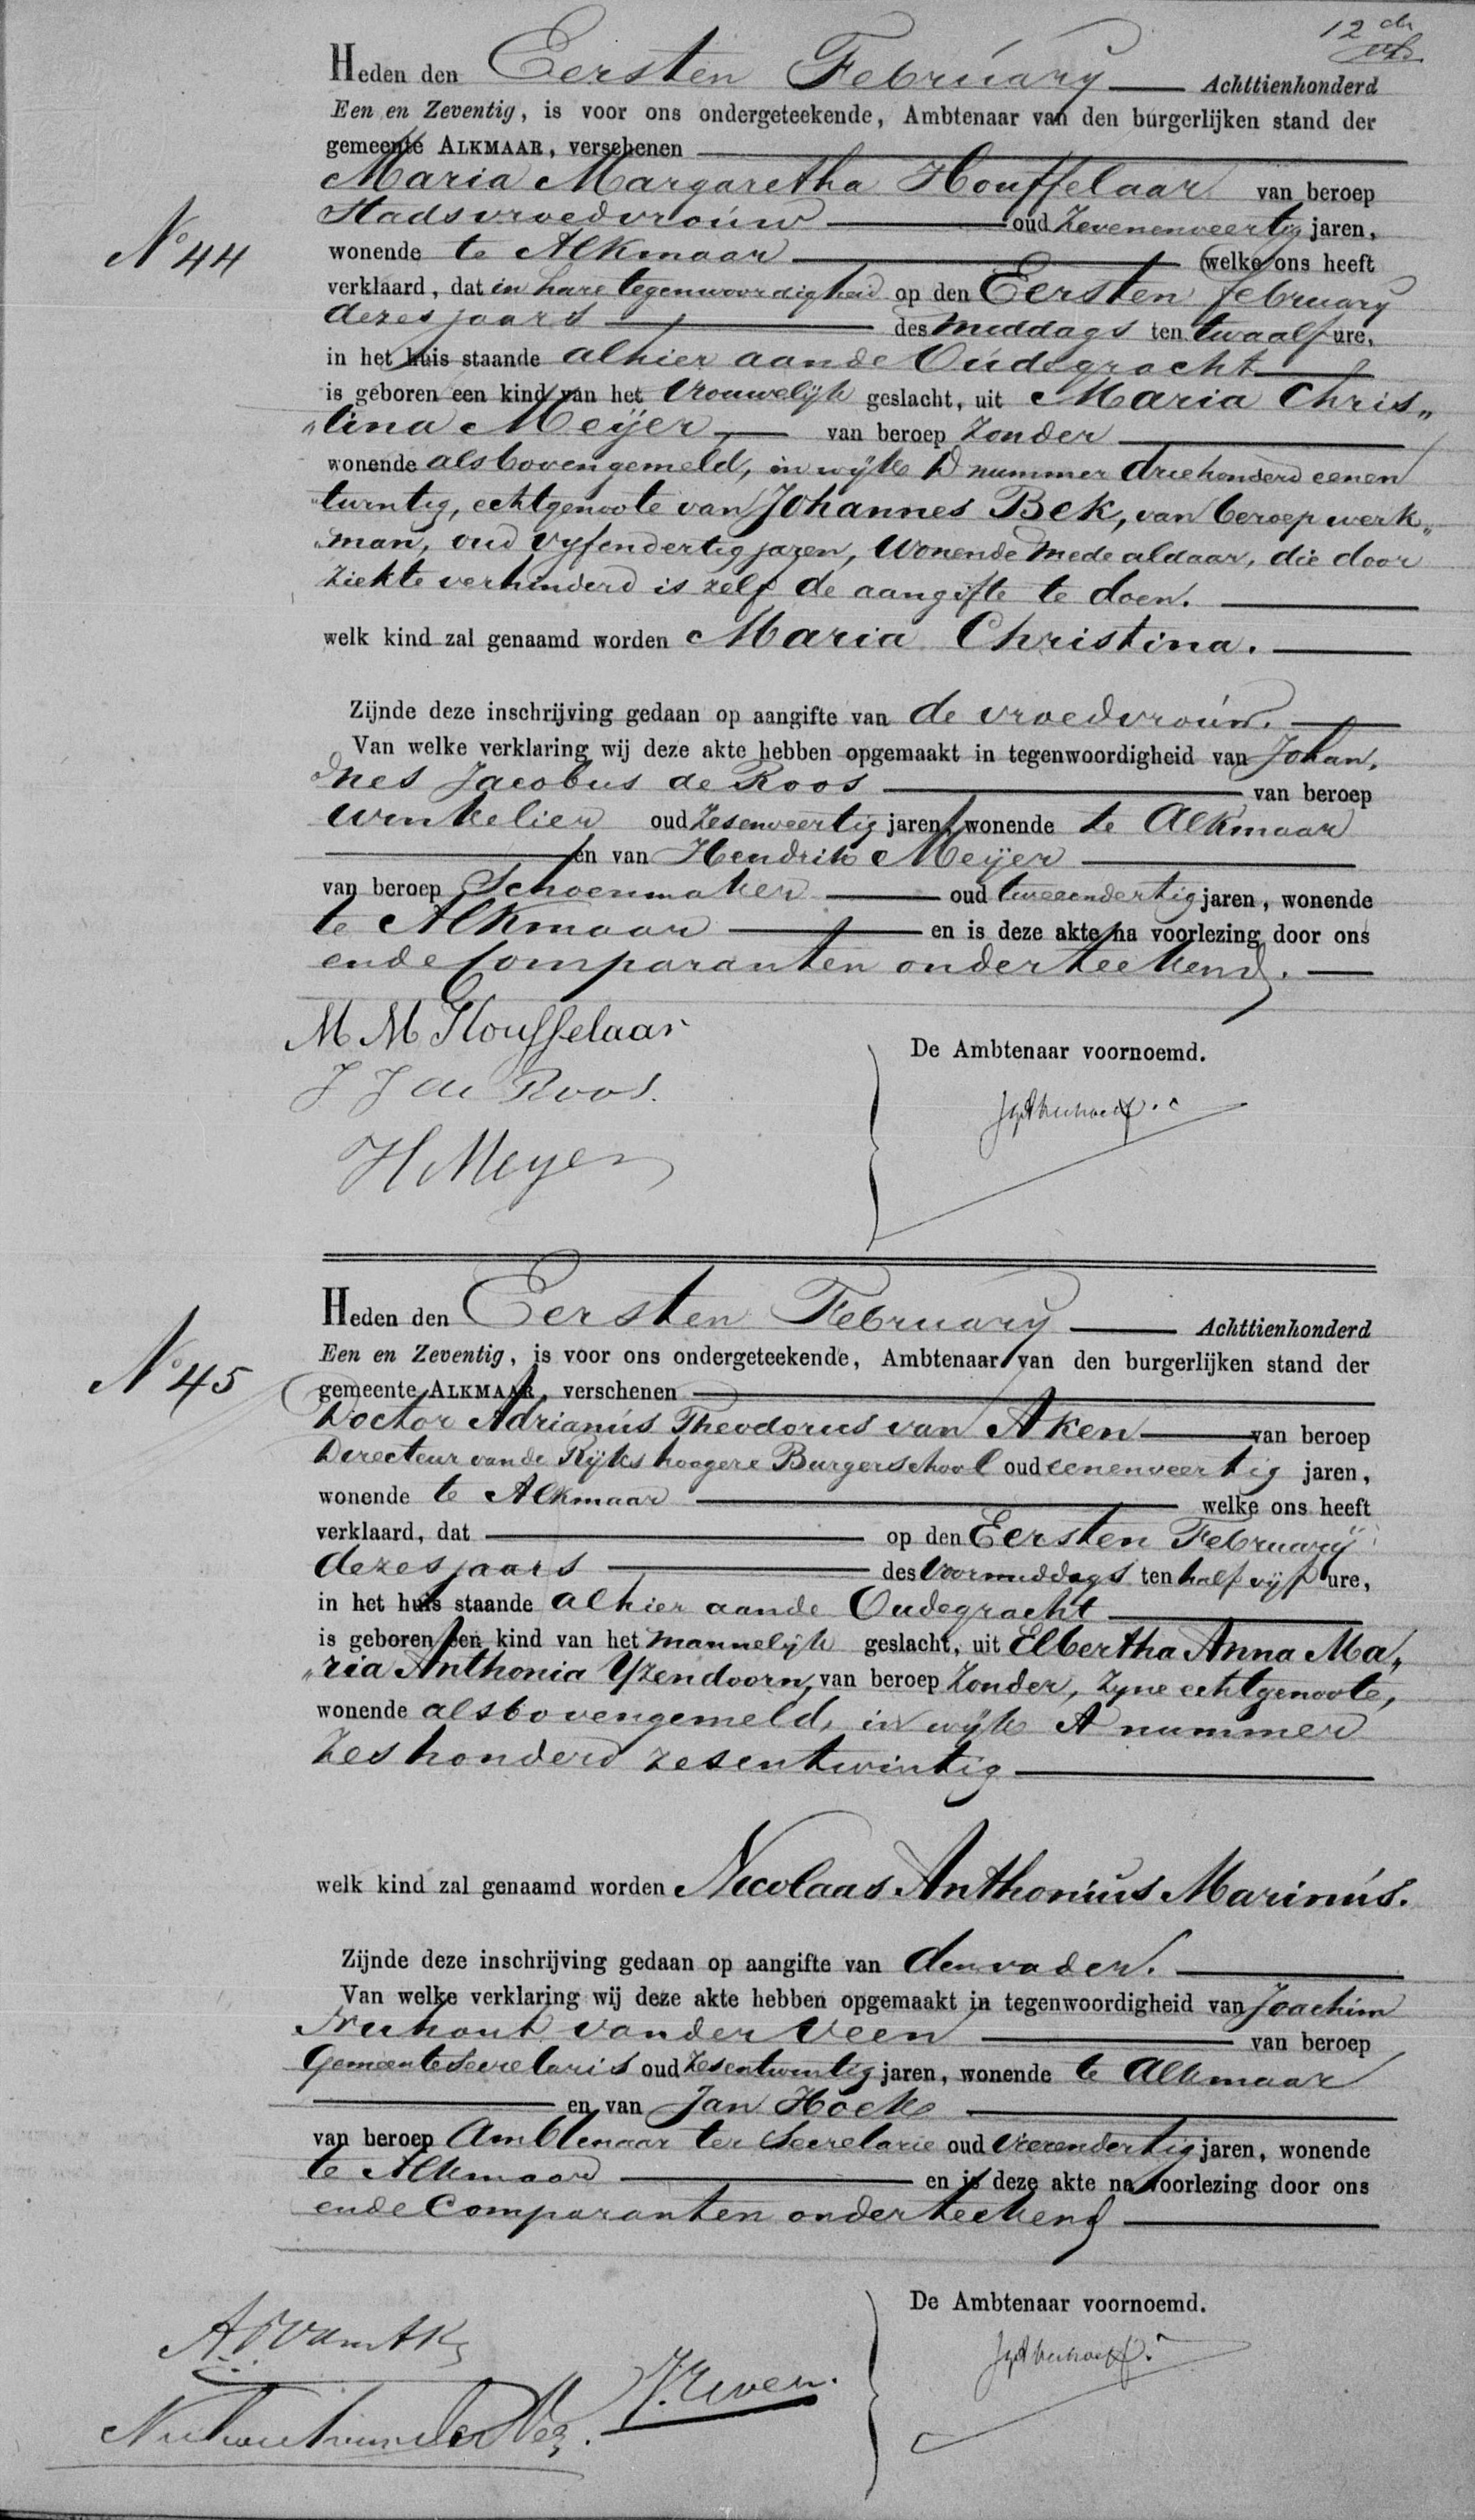 12 de
Heden den Eersten February Achttienhonderd
Een en Zeventig, is voor ons ondergeteekende, Ambtenaar van den burgerlijken stand der
gemeente ALKMAAR, verschenen
Maria Margaretha Houffelaar van beroep
Stadsvroedvrouw oud Zevenenveertig jaren,
No 44
wonende te Alkmaar welke ons heeft
verklaard, dat in hare tegenwoordigheid op den Eersten february
dezes jaars des middags ten twaalf ure,
in het huis staande alhier aande Oudegracht
is geboren een kind van het Vrouwelijk geslacht, uit Maria Chris„
„tina Meijer van beroep Zonder
wonende als bovengemeld, in wijk D nummer driehonderd eenen
twintig, echtgenoote van Johannes Bek, van beroep werk„
„man, oud vyfendertig jaren, Wonende mede aldaar, die door
Ziekte verhinderd is zelf de aangifte te doen.
welk kind zal genaamd worden Maria Christina.
Zijnde deze inschrijving gedaan op aangifte van de vroedvrouw.
Van welke verklaring wij deze akte hebben opgemaakt in tegenwoordigheid van Johan„
nes Jacobus de Roos van beroep
Winkelier oud Zesenveertig jaren, wonende te Alkmaar
en van Hendrik Meijer
van beroep Schoenmaker oud tweeendertig jaren, wonende
te Alkmaar en is deze akte na voorlezing door ons
en de Comparanten onderteekend.
M M Houffelaar
De Ambtenaar voornoemd.
J J de Roos.
H Meyer
Heden den Eersten February Achttienhonderd
Een en Zeventig, is voor ons ondergeteekende, Ambtenaar van den burgerlijken stand der
No 45
gemeente ALKMAAR, verschenen
Doctor Adrianus Theodorus van Aken van beroep
Directeur van de Rijks hoogere Burgerschool oud eenenveertig jaren,
wonende te Alkmaar welke ons heeft
verklaard, dat op den Eersten February
dezes jaars des Voormiddags ten half vijf ure,
in het huis staande alhier aande Oudegracht
is geboren een kind van het mannelijk geslacht, uit Elbertha Anna Ma„
„ria Anthonia Yzendoorn, van beroep Zonder, zyne echtgenoote,
wonende als bovengemeld, in wijk A nummer
Zes honderd zesentwintig
welk kind zal genaamd worden Nicolaas Anthonius Marinus.
Zijnde deze inschrijving gedaan op aangifte van den vader.
Van welke verklaring wij deze akte hebben opgemaakt in tegenwoordigheid van Joachim
Nuhout van der Veen van beroep
Gemeente Secretaris oud Zesentwintig jaren, wonende te Alkmaar
en van Jan Hoek
van beroep Ambtenaar ter Secretarie oud Vierendertig jaren, wonende
te Alkmaar en is deze akte na voorlezing door ons
en de Comparanten onderteekend
De Ambtenaar voornoemd.
Nuhout van der Veen.